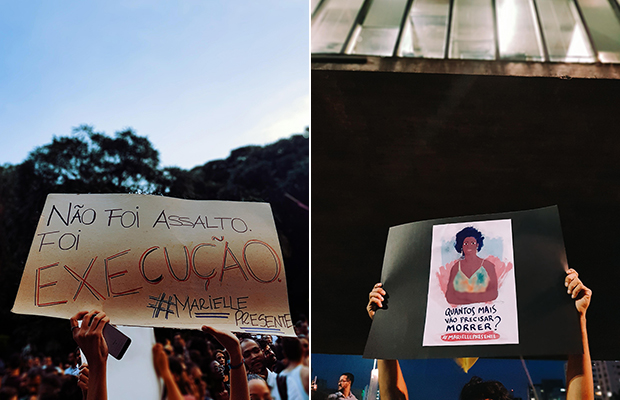 NÃO FOI ASSALTO.
FOI
EXECUÇÃO.
#MARIELLE
PRESENTE
QUANTOS MAIS
VÃO PRECISAR
MORRER?
#MARIELLE PRESENTE